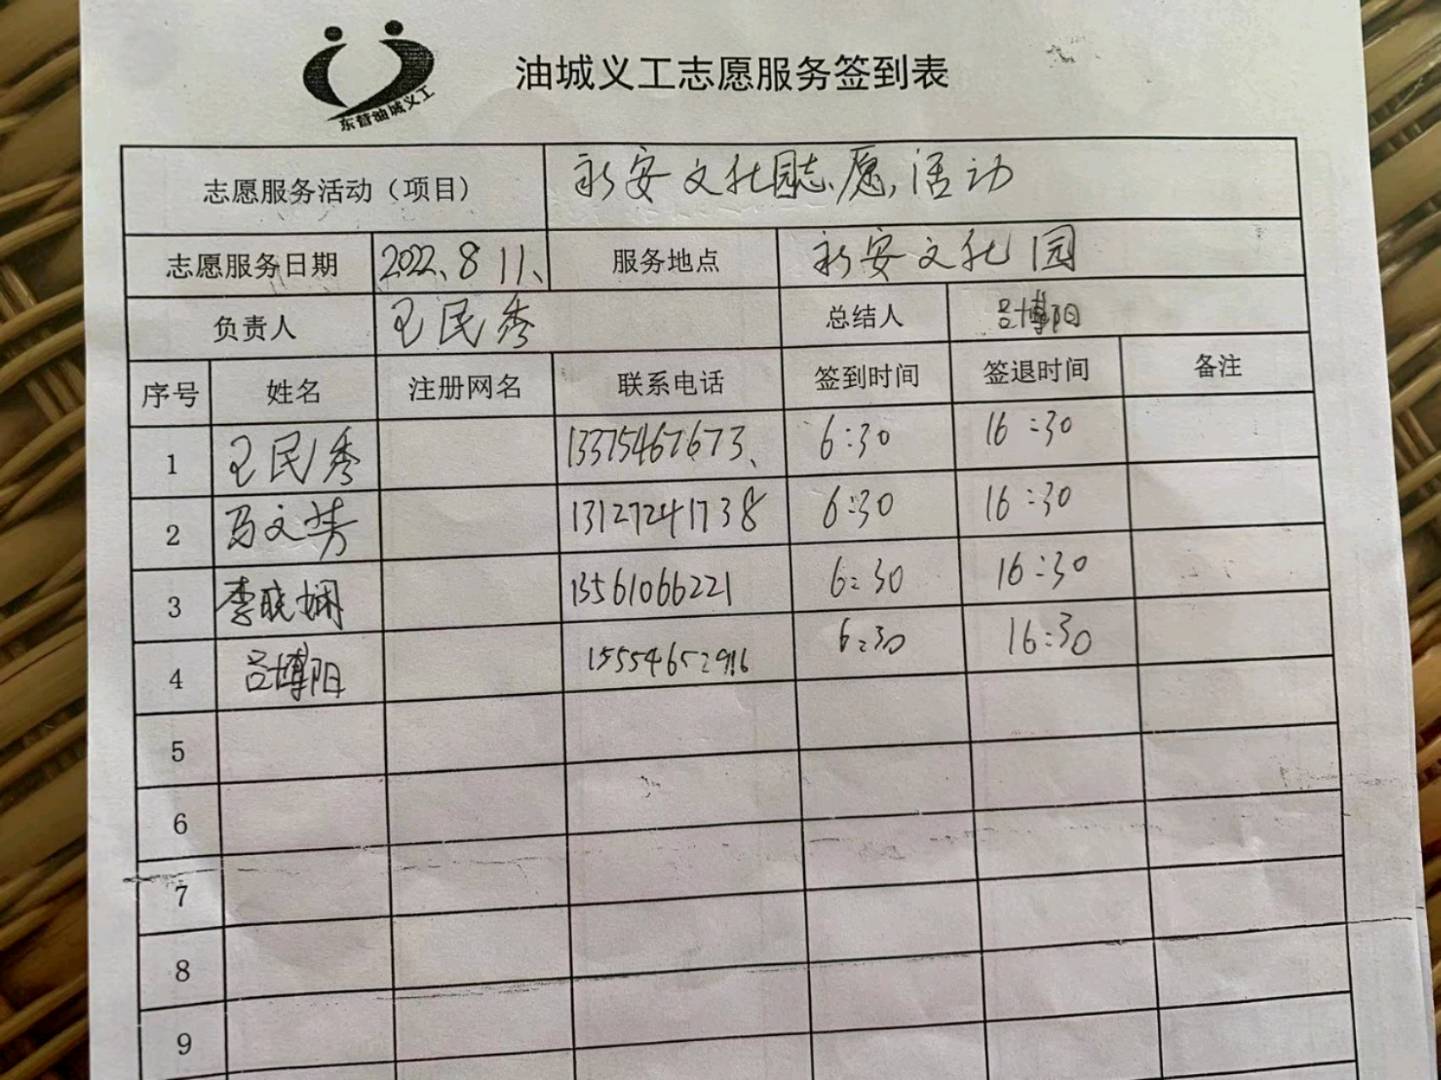 油城义工志愿服务签到表
东营油城义工
志愿服务活动（项目） 永安文化园志愿活动
志愿服务日期 2022、8 11、 服务地点 永安文化园
负责人 王民秀 总结人 吕博阳
序号 姓名 注册网名 联系电话 签到时间 签退时间 备注
1 王民秀 13375467673、 6:30 16:30
2 马文芳 13127241738 6:30 16:30
3 李晓娴 13561066221 6:30 16:30
4 吕博阳 15554652916 6:30 16:30
5
6
7
8
9